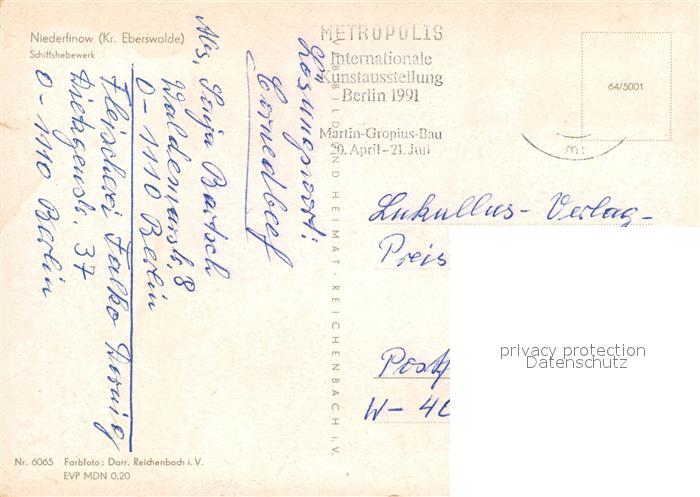 Niederfinow (Kr. Eberswalde)
Schiffshebewerk
METROPOLIS
Internationale
Kunstausstellung
Berlin 1991
Martin-Gropius-Bau
20. April - 21. Juli
64/5001
Lösungswort:
Cornedbeef
Abs. Sonja Bartsch
Waldemarstr. 8
O-1110 Berlin
Fleischerei Falko
Dietzgenstr. 37
O-1110 Berlin
VERLAG BILD UND HEIMAT · REICHENBACH i. V.
Lukullus-Verlag-
Preis
Postf
W-40
privacy protection
Datenschutz
Nr. 6065 Farbfoto: Darr, Reichenbach i. V.
EVP MDN 0,20